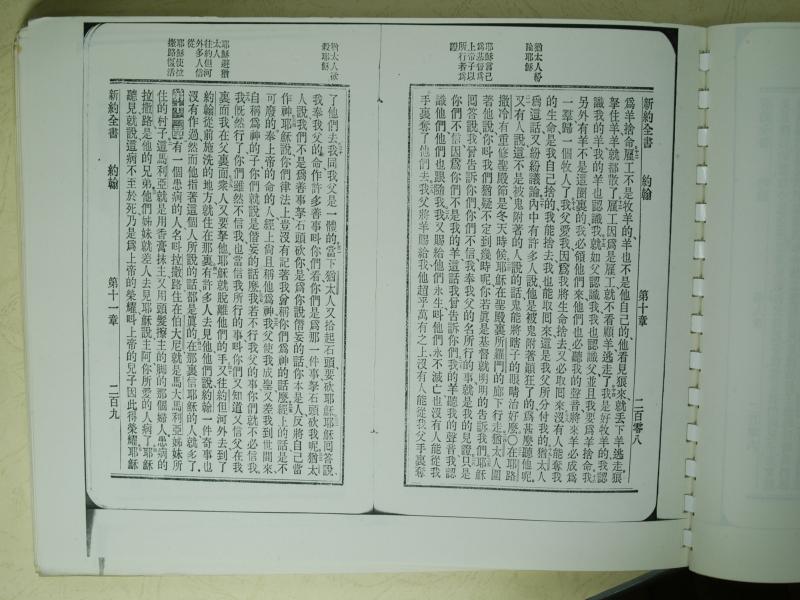 新約全書 約翰 第十章 二百零八
爲羊捨命雇工不是牧羊的羊也不是他自己的他看見狼來就丟下羊逃走狼
拏住羊羊就都散了雇工因爲是雇工就不看顧羊逃走了我是好牧羊的我認
識我的羊我的羊也認識我就如父認識我我也認識父並且我要爲羊捨命我
另外有羊不是這圈裏的我必領他們來他們也必聽我的聲音將來羊必成爲
一羣歸一個牧人了我父愛我因爲我將生命捨去又必取囘來沒有人能奪我
的生命是我自己捨的我能捨去我也能取囘來這是我父所分付我的猶太人
爲這話又紛紛議論內中有許多人說他是被鬼附著顚狂了的爲甚麽聽他呢
又有人說這不是被鬼附著的人說的話鬼能將瞎子的眼睛治好麽〇在耶路
撒冷有重修聖殿節是冬天時候耶穌在聖殿裏所羅門的廊下行走猶太人圍
著他說你叫我們猶疑不定到幾時呢你若眞是基督就明明的告訴我們耶穌
囘答說我曾告訴你們你們不信我奉我父的名所行的事就是我的見證只是
你們不信因爲你們不是我的羊這話我曾告訴你們我的羊聽我的聲音我認
識他們他們也跟隨我我又賜給他們永生叫他們永不滅亡也沒有人能從我
手裏奪了他們去我父將羊賜給我他超乎萬有之上沒有人能從我父手裏奪
猶太人紛
論耶穌
耶穌言己
爲基督爲
上帝子以
所行者爲
證
了他們去我同我父是一體的當下猶太人又拾起石頭要砍耶穌耶穌囘答說
我奉我父的命作許多善事叫你們看你們是爲那一件事拏石頭砍我呢猶太
人說我們不是爲善事拏石頭砍你是爲你說僭妄的話你本是人反將自己當
作神耶穌說你們律法上豈沒有記著我曾稱你們爲神的話麽經上的話是不
可廢的奉上帝的命的人經上尙且稱他爲神我父使我成聖又差我到世間來
自稱爲神的子你們就說是僭妄的話麽我若不行我父的事你們就不必信我
我旣然行了你們雖然不信我也當信我所行的事叫你們又知道又信父在我
裏面我在父裏面衆人又要拏他耶穌就脫離他們的手又往約但河外去到了
約翰從前施洗的地方就住在那裏有許多人去見他他們說約翰一件奇事也
沒有作過然而他指著這個人所說的話都是眞的在那裏信耶穌的人就多了
有一個患病的人名叫拉撒路住在伯大尼就是馬大馬利亞姊妹所
住的村子這馬利亞就是用香膏抹主又用頭髮擦主的脚的那個婦人患病的
拉撒路是他的兄弟他們姊妹就差人去見耶穌說主阿你所愛的人病了耶穌
聽見就說這病不至於死乃是爲上帝的榮耀叫上帝的兒子因此得榮耀耶穌
新約全書 約翰 第十一章 二百九
猶太人欲
殺耶穌
耶穌避猶
太人
往約但河
外多人信
從
耶穌使拉
撒路復活